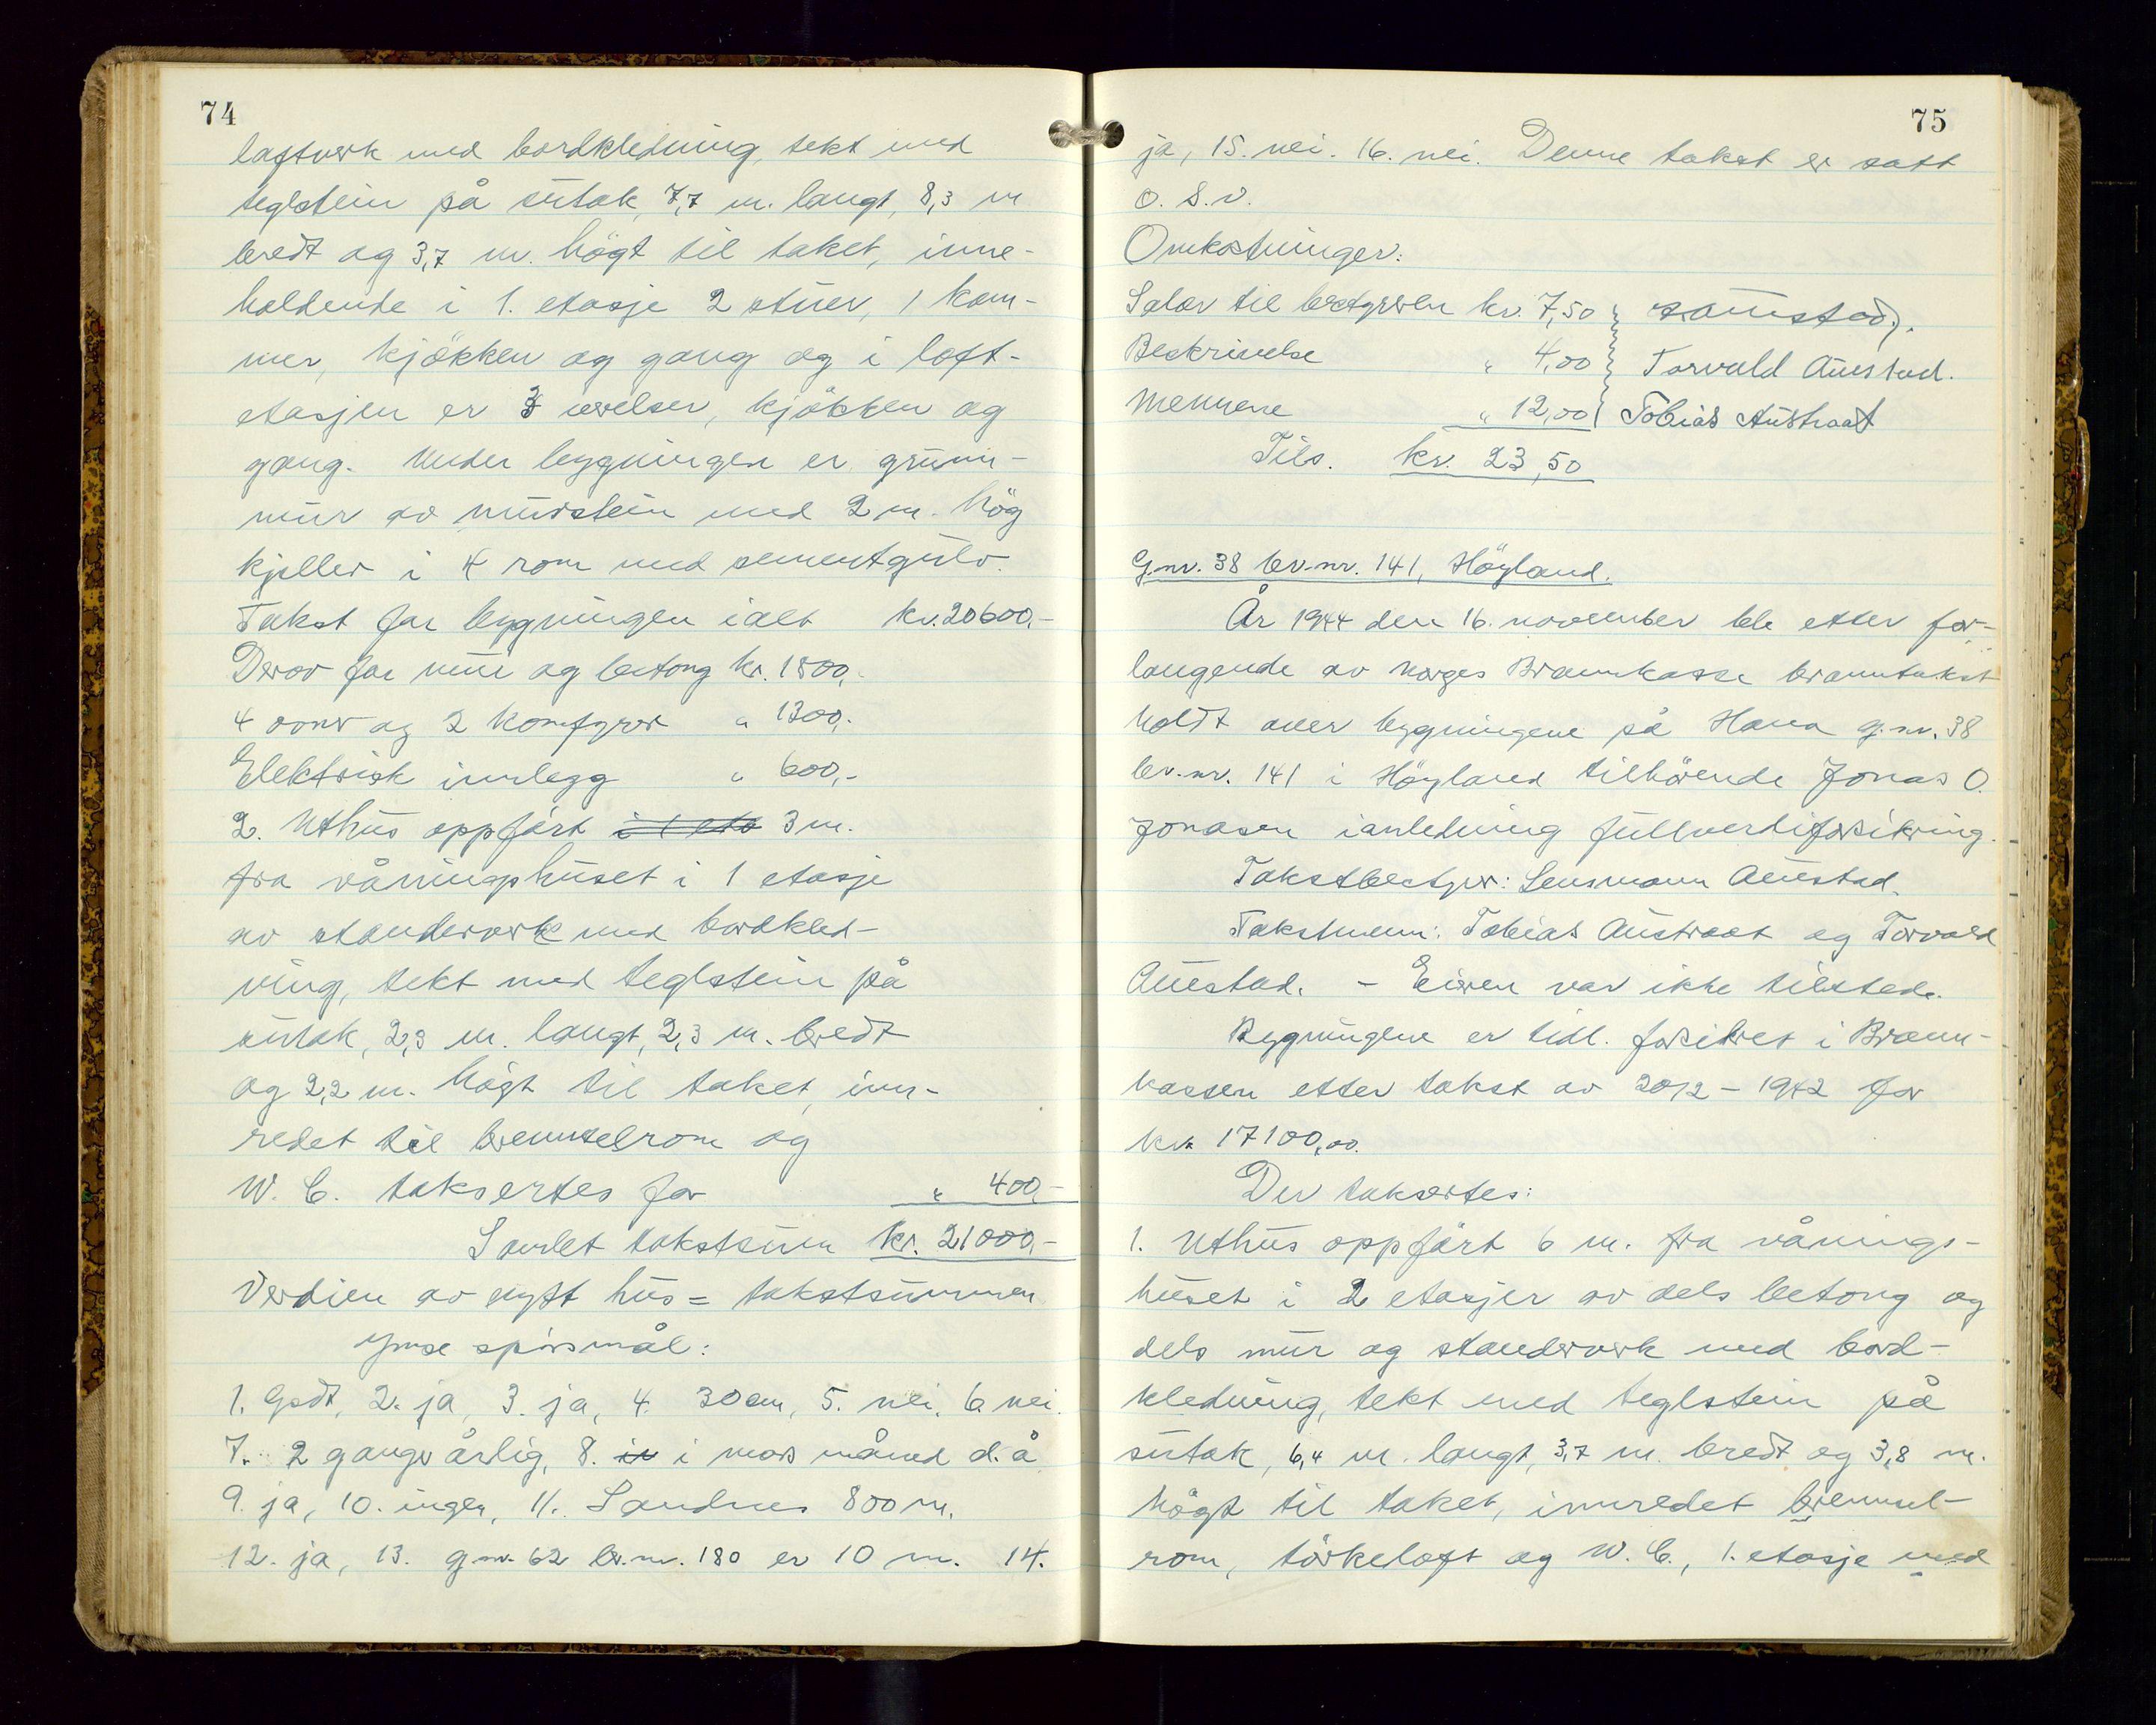 74
laftverk med bordkledning, tekt med
teglstein på sutak, 7,7 m. langt, 8,3 m
bredt og 3,7 m. högt til taket, inne-
holdende i 1. etasje 2 stuer, 1 kam-
mer, kjökken og gang og i loft-
etasjen er 3 verelser, kjökken og
gang. Under bygningen er grunn-
mur av murstein med 2 m. hög
kjeller i 4 rom med sementgulv.
Takst for bygningen ialt kr. 20600,-
Derav for mur og betong kr. 1800,-
4 ovner og 2 komfyrer " 1300,-
Elektrisk innlegg " 600,-
2. Uthus oppfört i 1 eta 3 m.
fra våningshuset i 1 etasje
av standerverk med bordkled-
ning, tekt med teglstein på
sutak, 2,3 m. langt, 2,3 m. bredt
og 2,2 m. högt til taket, inn-
redet til brenselrom og
W. C. taksertes for " 400,-
Samlet takstsum kr. 21000,-
Verdien av nytt hus = takstsummen
Ymse spörsmål:
1. Godt, 2. ja, 3. ja, 4. 30 cm, 5. nei, 6. nei.
7. 2 ganger årlig, 8. i mars måned d. å
9. ja, 10. ingen, 11. Sandnes 800 m.
12. ja, 13. g.nr. 62 br.nr. 180 er 10 m. 14.
75
ja, 15. nei. 16. nei. Denne takst er satt
o. s. v.
Omkostninger:
Salær til bestyreren kr. 7,50 Aunstad.
Beskrivelse " 4,00 Torvald Auestad.
Mennene " 12,00 Tobias Austraat
Tils. kr. 23,50
G.nr. 38 br.nr. 141, Höyland.
År 1944 den 16. november ble etter for-
langende av Norges Brannkasse branntakst
holdt over bygningene på Hana g.nr. 38
br.nr. 141 i Höyland tilhörende Jonas O.
Jonasen ianledning fullverdiforsikring.
Takstbestyrer: Lensmann Auestad.
Takstmenn: Tobias Austraat og Torvald
Auestad. - Eieren var ikke tilstede.
Bygningene er tidl. forsikret i Brann-
kassen etter takst av 20/2 - 1942 for
kr. 17100,00.
Der taksertes:
1. Uthus oppfört 6 m. fra vånings-
huset i 2 etasjer av dels betong og
dels mur og standerverk med bord-
kledning, tekt med teglstein på
sutak, 6,4 m. langt, 3,7 m. bredt og 3,8 m.
högt til taket, innredet brensel-
rom, törkeloft og W. C., 1. etasje med